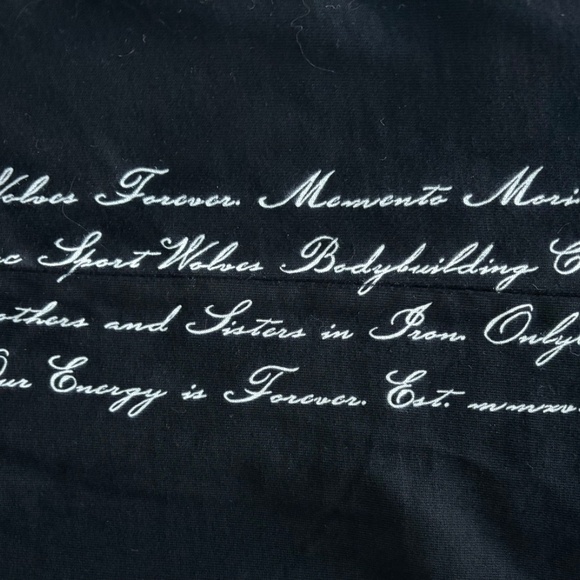 Wolves Forever. Memento Mori
Sport Wolves Bodybuilding C
others and Sisters in Iron. Only
Our Energy is Forever. Est. mmxv